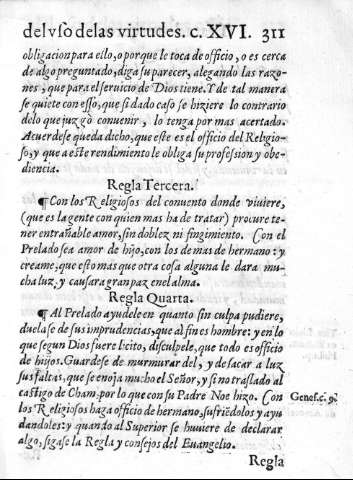 del vso de las virtudes. c. XVI. 311
obligacion para ello, o porque le toca de officio, o es cerca
de algo preguntado, diga su parecer, alegando las razo-
nes, que para el seruicio de Dios tiene. Y de tal manera
se quiete con esso, que si dado caso se hiziere lo contrario
de lo que juzgò conuenir, lo tenga por mas acertado.
Acuerdese queda dicho, que este es el officio del Religio-
so, y que a este rendimiento le obliga su profession y obe-
diencia.
Regla Tercera.
¶ Con los Religiosos del conuento donde viuiere,
(que es la gente con quien mas ha de tratar) procure te-
ner entrañable amor, sin doblez ni fingimiento. Con el
Prelado sea amor de hijo, con los demas de hermano: y
creame, que esto mas que otra cosa alguna le dara mu-
cha luz, y causara gran paz en el alma.
Regla Quarta.
¶ Al Prelado ayudele en quanto sin culpa pudiere,
duelase de sus imprudencias, que al fin es hombre: y en lo
que segun Dios fuere licito, disculpele, que todo es officio
de hijos. Guardese de murmurar del, y de sacar a luz
sus faltas, que se enoja mucho el Señor, y si no traslado al
castigo de Cham, por lo que con su Padre Noe hizo. Con
Genes. c. 9.
los Religiosos haga officio de hermano, sufriẽdolos y ayu
dandoles: y quando al Superior se huuiere de declarar
algo, sigase la Regla y consejos del Euangelio.
Regla